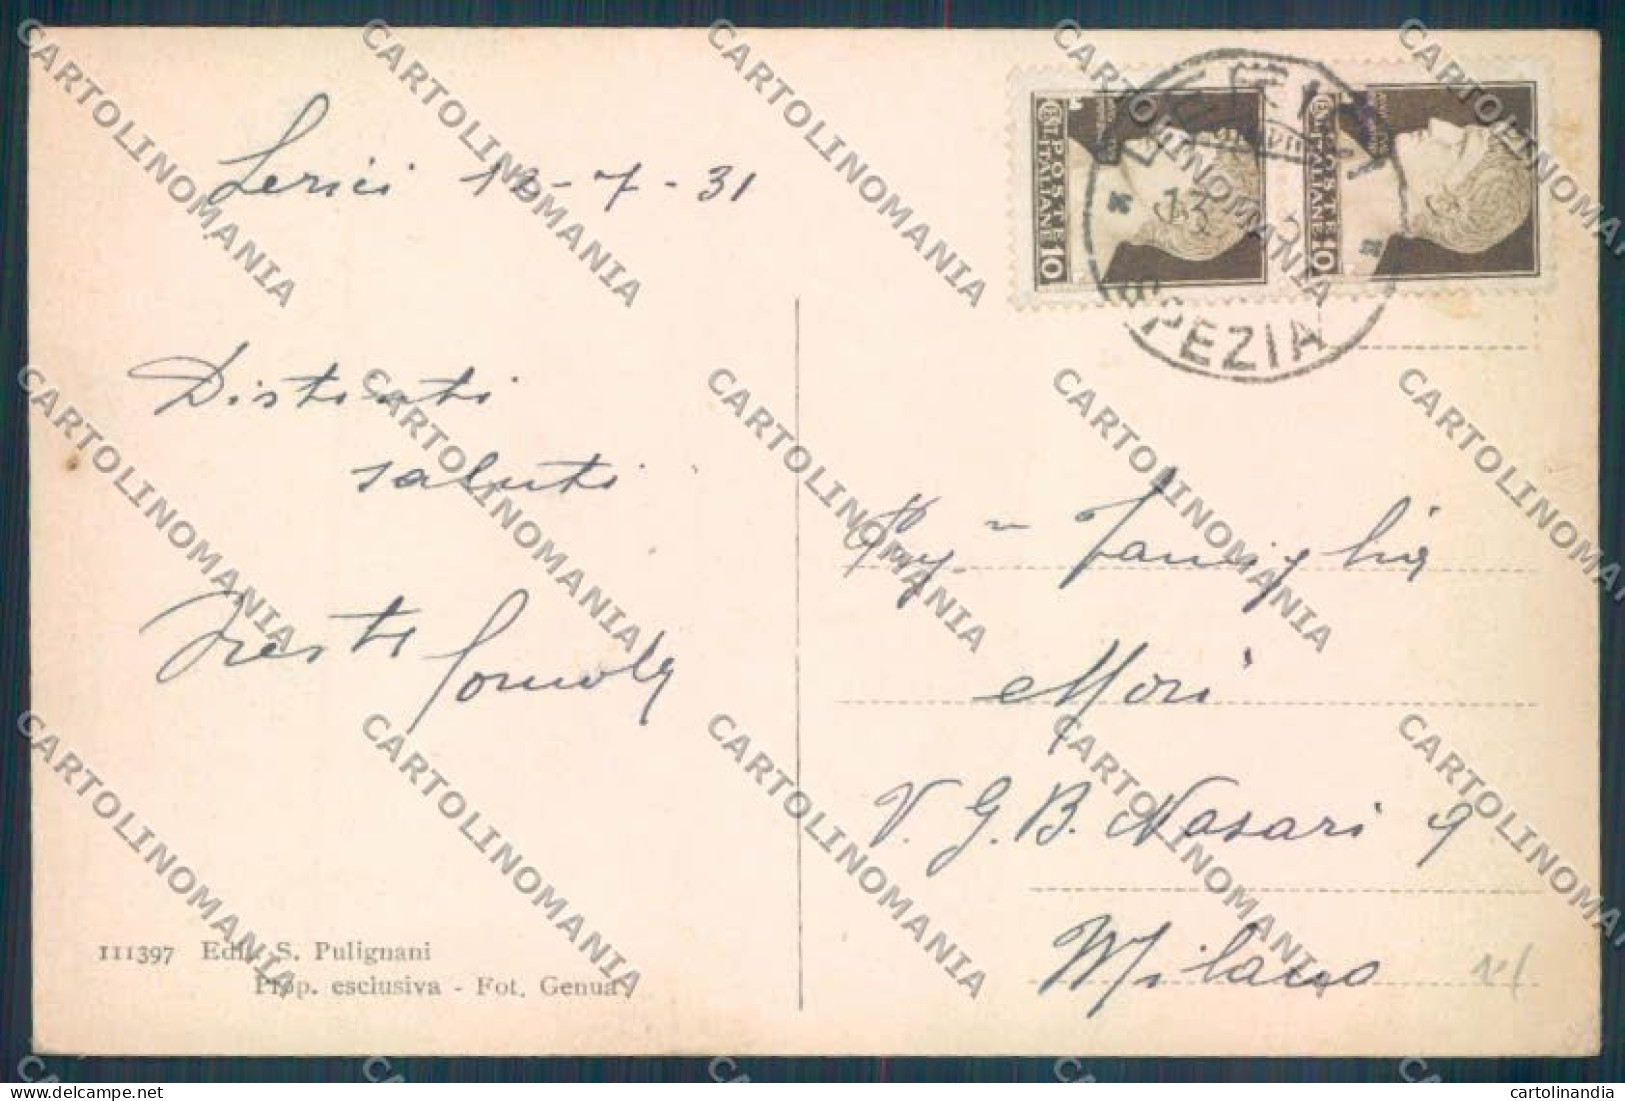 Lerici 12-7-31
Distinti
saluti
111397 Edit. S. Pulignani
Prop. esclusiva - Fot. Genua
POSTE
ITALIANE
CENT. 10
POSTE
ITALIANE
CENT. 10
LERICI
13
SPEZIA
Famiglia
Mori
V. G. B. Vasari 9
Milano
CARTOLINOMANIA
cartolinandia